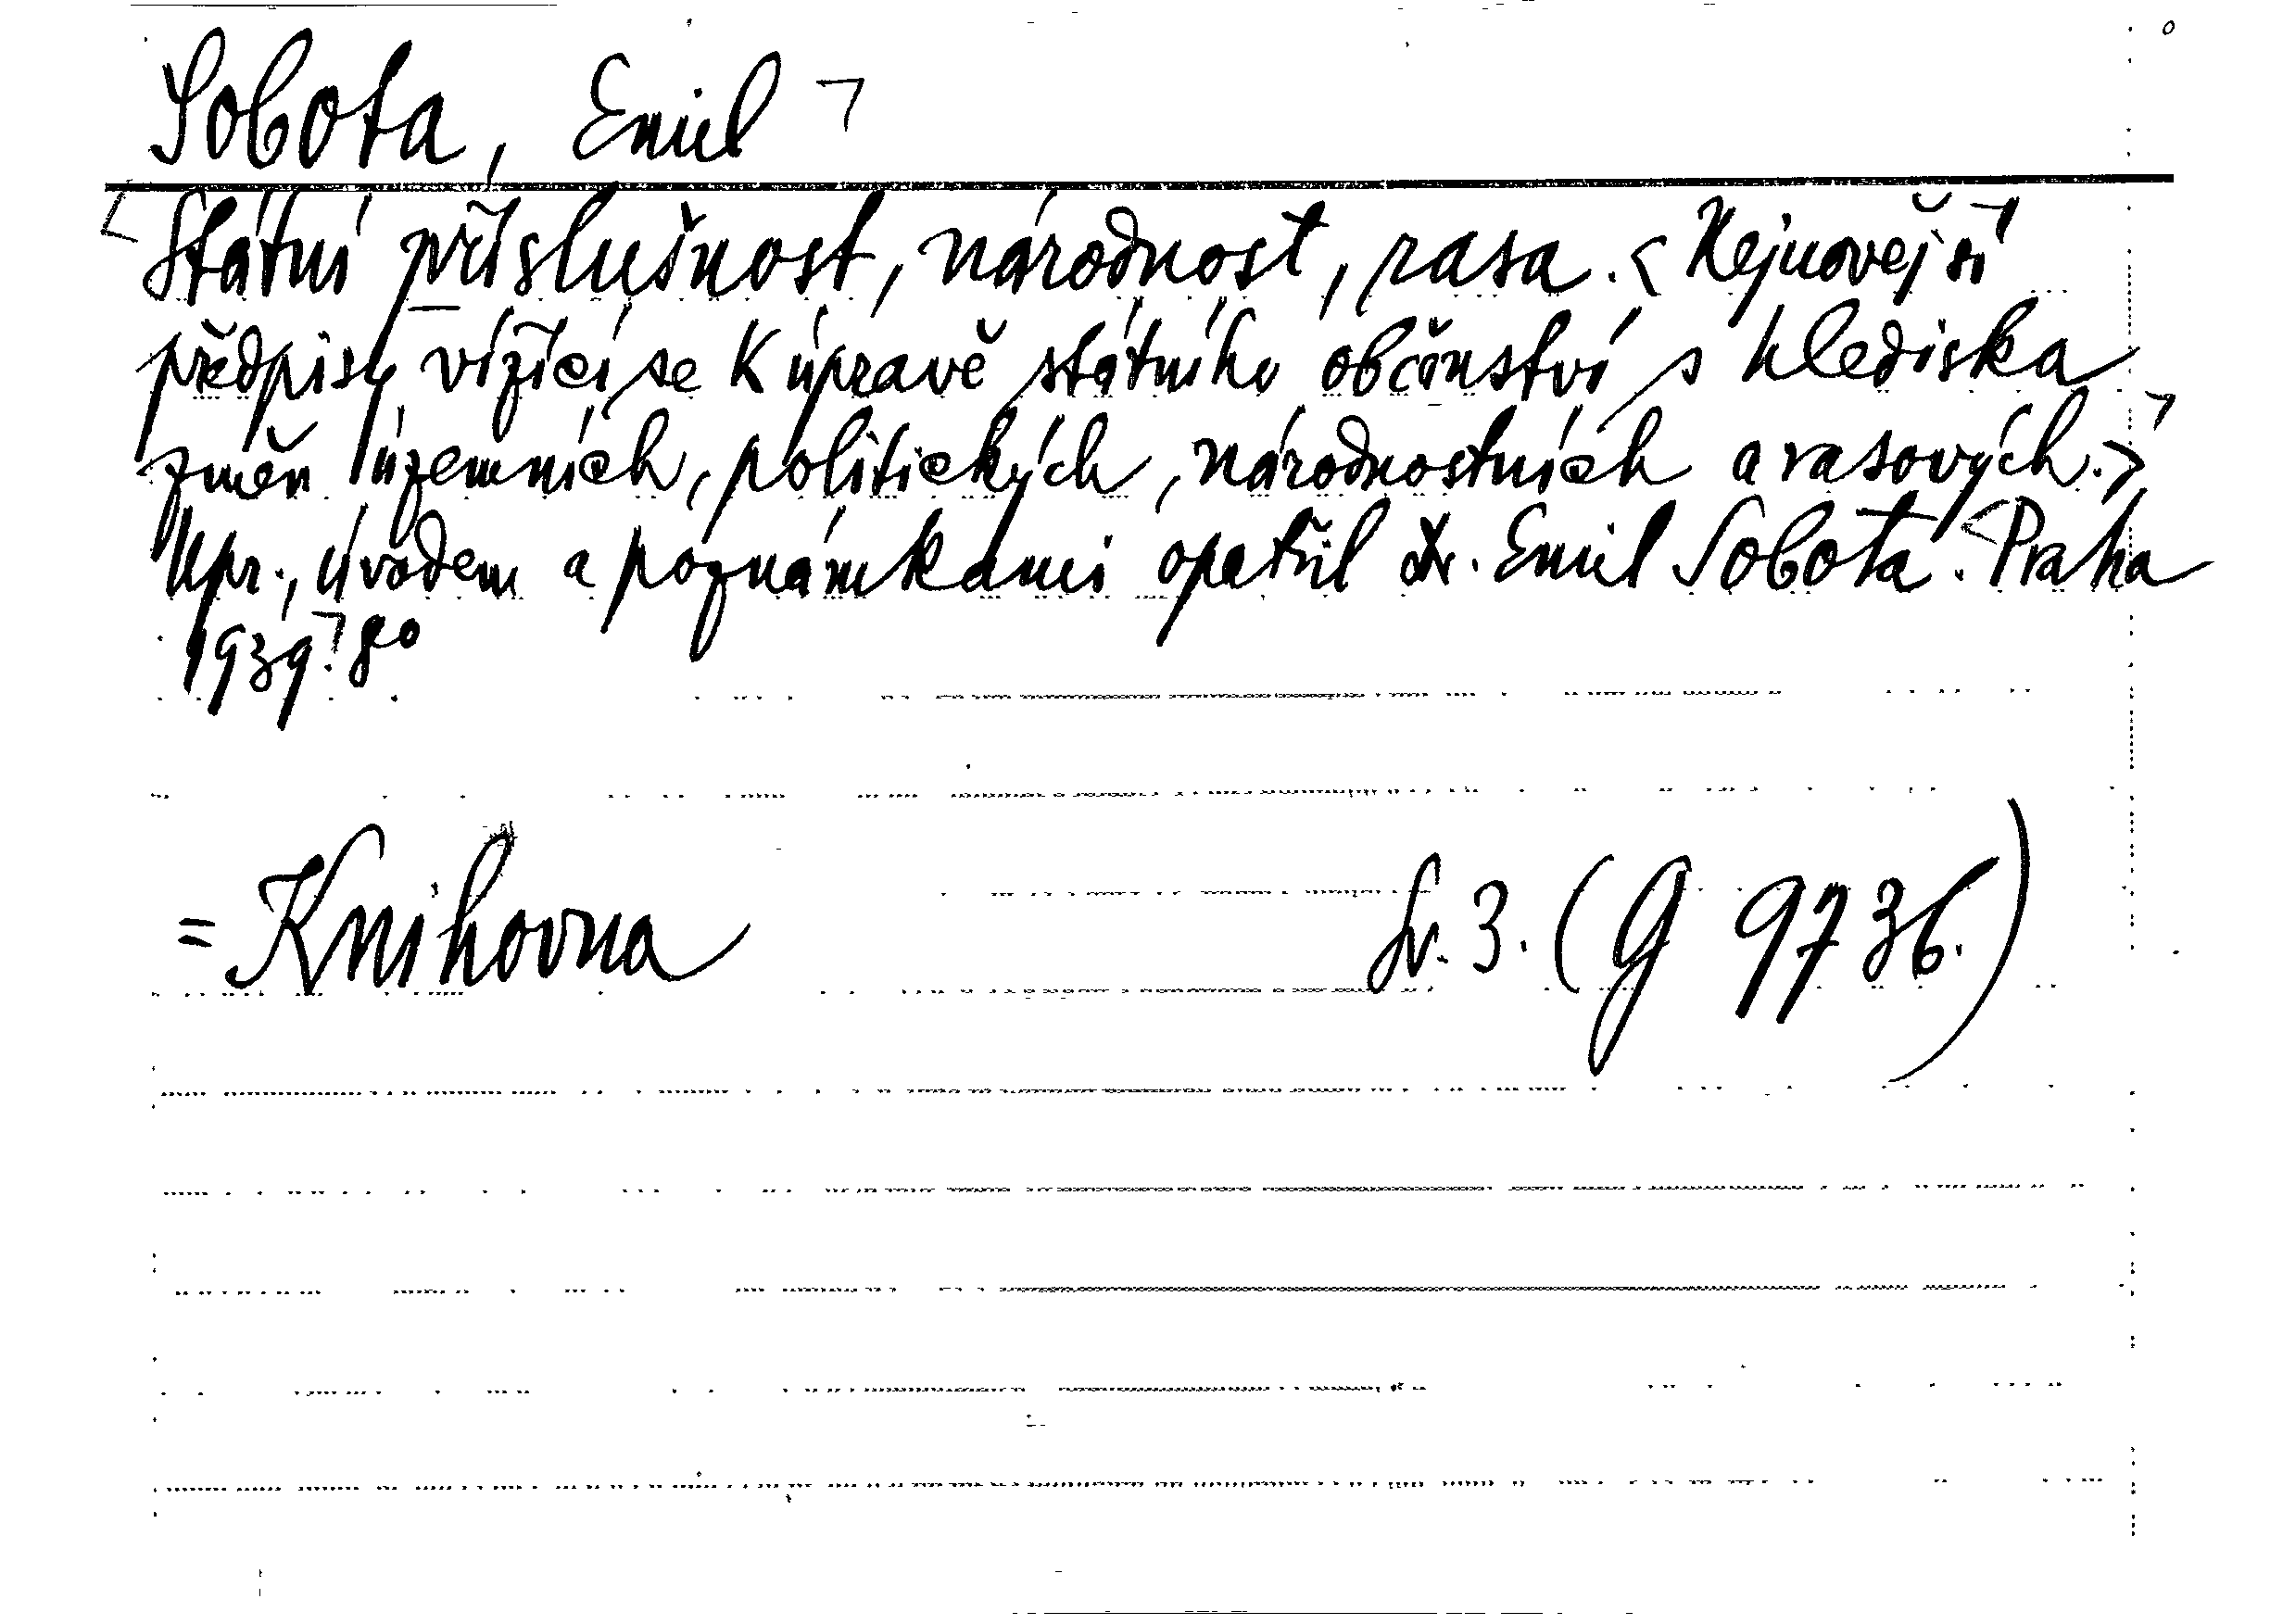 Sobota, Emil ┐
Státní příslušnost, národnost, rasa. < Nejnovější
předpisy vížící se k úpravě státního občanství s hlediska
změn územních, politických, národnostních a rasových.>
Upr., úvodem a poznámkami opatřil dr. Emil Sobota. Praha
1939. 8°
= Knihovna Sv. 3. (G 9736.)